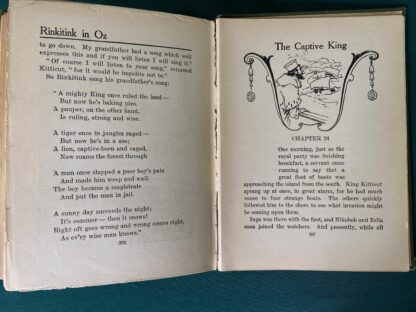 Rinkitink in Oz
to go down. My grandfather had a song which well
expresses this and if you will listen I will sing it."
"Of course I will listen to your song," returned
Kitticut, "for it would be impolite not to."
So Rinkitink sang his grandfather's song:
"A mighty King once ruled the land—
But now he's baking pies.
A pauper, on the other hand,
Is ruling, strong and wise.
A tiger once in jungles raged—
But now he's in a zoo;
A lion, captive-born and caged,
Now roams the forest through
A man once slapped a poor boy's pate
And made him weep and wail.
The boy became a magistrate
And put the man in jail.
A sunny day succeeds the night;
It's summer—then it snows!
Right oft goes wrong and wrong comes right,
As ev'ry wise man knows."
306
The Captive King
CHAPTER 24
One morning, just as the
royal party was finishing
breakfast, a servant came
running to say that a
great fleet of boats was
approaching the island from the south. King Kitticut
sprang up at once, in great alarm, for he had much
cause to fear strange boats. The others quickly
followed him to the shore to see what invasion might
be coming upon them.
Inga was there with the first, and Nikobob and Zella
soon joined the watchers. And presently, while all
307